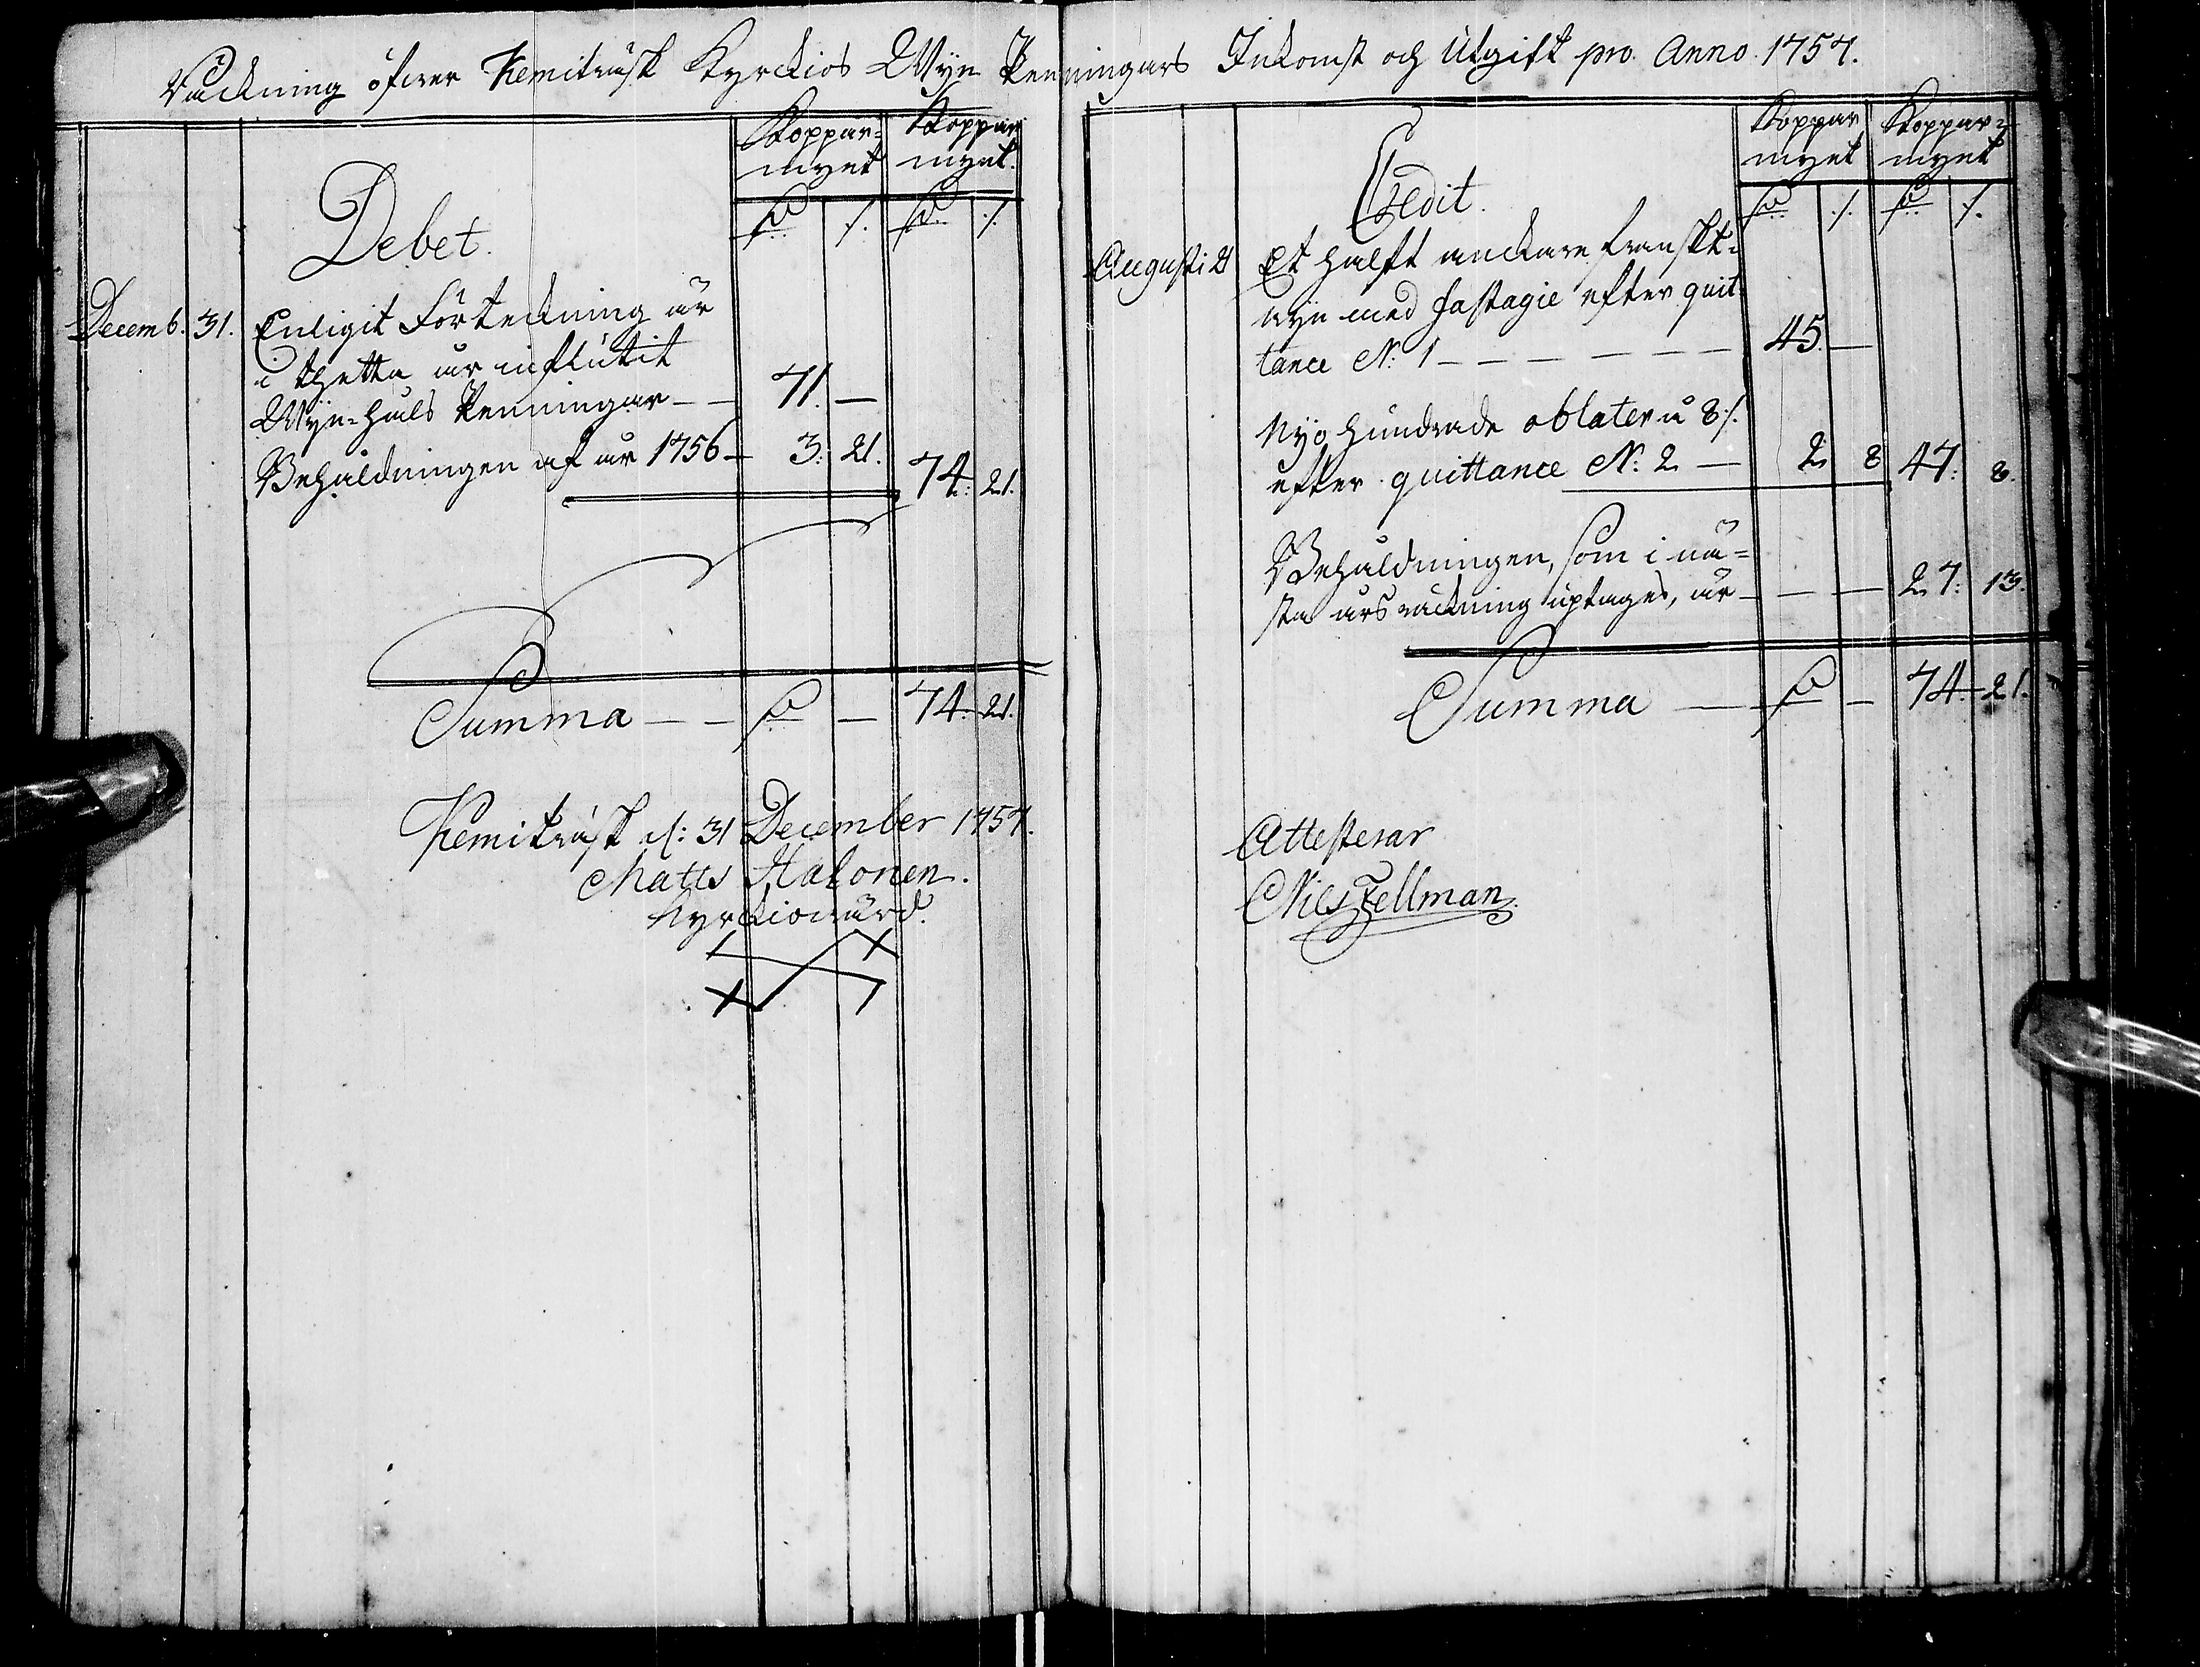 Räckning öfwer Kemiträsk Kyrckios Wijn Penningars Inkomst och Utgift pro Anno 1757.
Koppar-
mynt
Koppar
mynt.
Debet.
Decemb. 31. Enligit Förteckning är
i thetta år influtit
Wijn-hals Penningar — — 71. —
Behåldningen af år 1756 — 3: 21. 74: 21.
Summa — — — 74: 21.
Kemiträsk d: 31 December 1757.
Matts Halonen.
Kyrckiowärd.
Koppar
mynt
Koppar-
mynt
Credit.
Augusti Et halft anckare franskt-
wijn med fastagie efter quit-
tance N: 1 — — — — — — 45. —
Nijo hundrade oblater à 8 ./.
efter quittance N: 2 — 2 8 47: 8.
Behåldningen, som i nä-
sta års räckning uptages, är — — — 27: 13.
Summa — — 74 — 21.
Attesterar
Nils Fellman